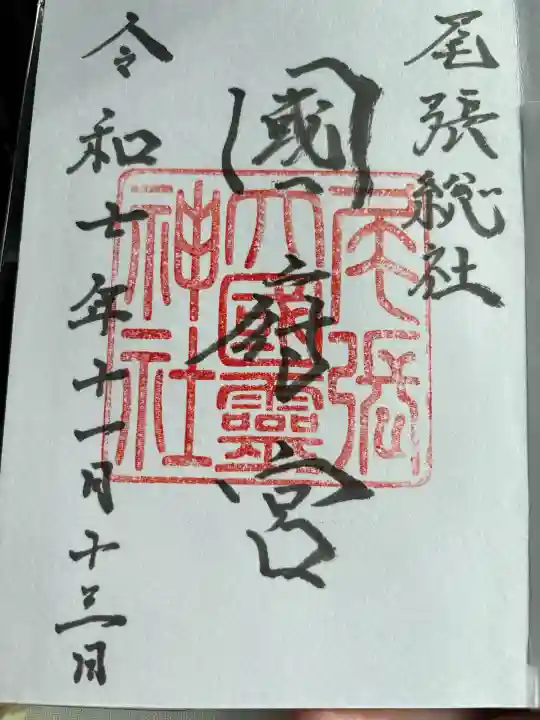 尾張総社
國府宮
令和七年十一月十三日
尾張
大國靈
神社